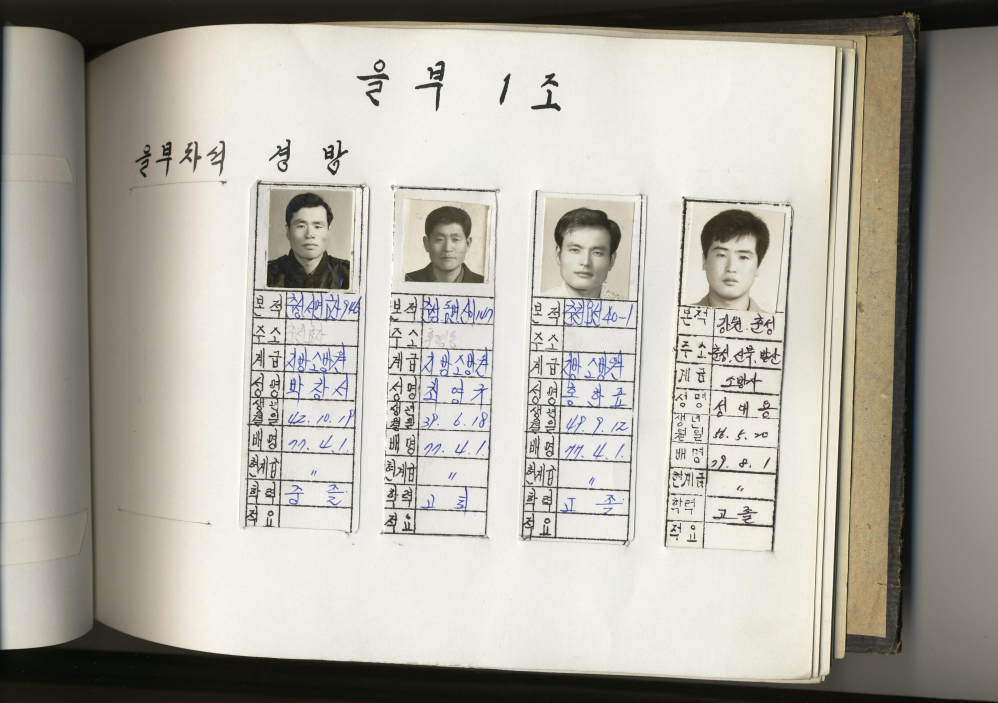 을부 1조
을부차석 경방
본적
주소
계급 지방소방원
성명 박창서
생년월일 42. 10. 19
배명 77. 4. 1.
현계급 〃
학력 중졸
적요
본적
주소
계급 지방소방원
성명 최영
생년월일 39. 6. 18
배명 77. 4. 1.
현계급 〃
학력 고퇴
적요
본적 40-1
주소
계급 지방소방원
성명 홍한표
생년월일 49. 9. 12
배명 77. 4. 1.
현계급 〃
학력 고졸
적요
본적 강원. 춘성
주소 춘성. 산무. 발산
계급 소방사
성명 성대용
생년월일 56. 5. 20
배명 79. 8. 1
현계급 〃
학력 고졸
적요